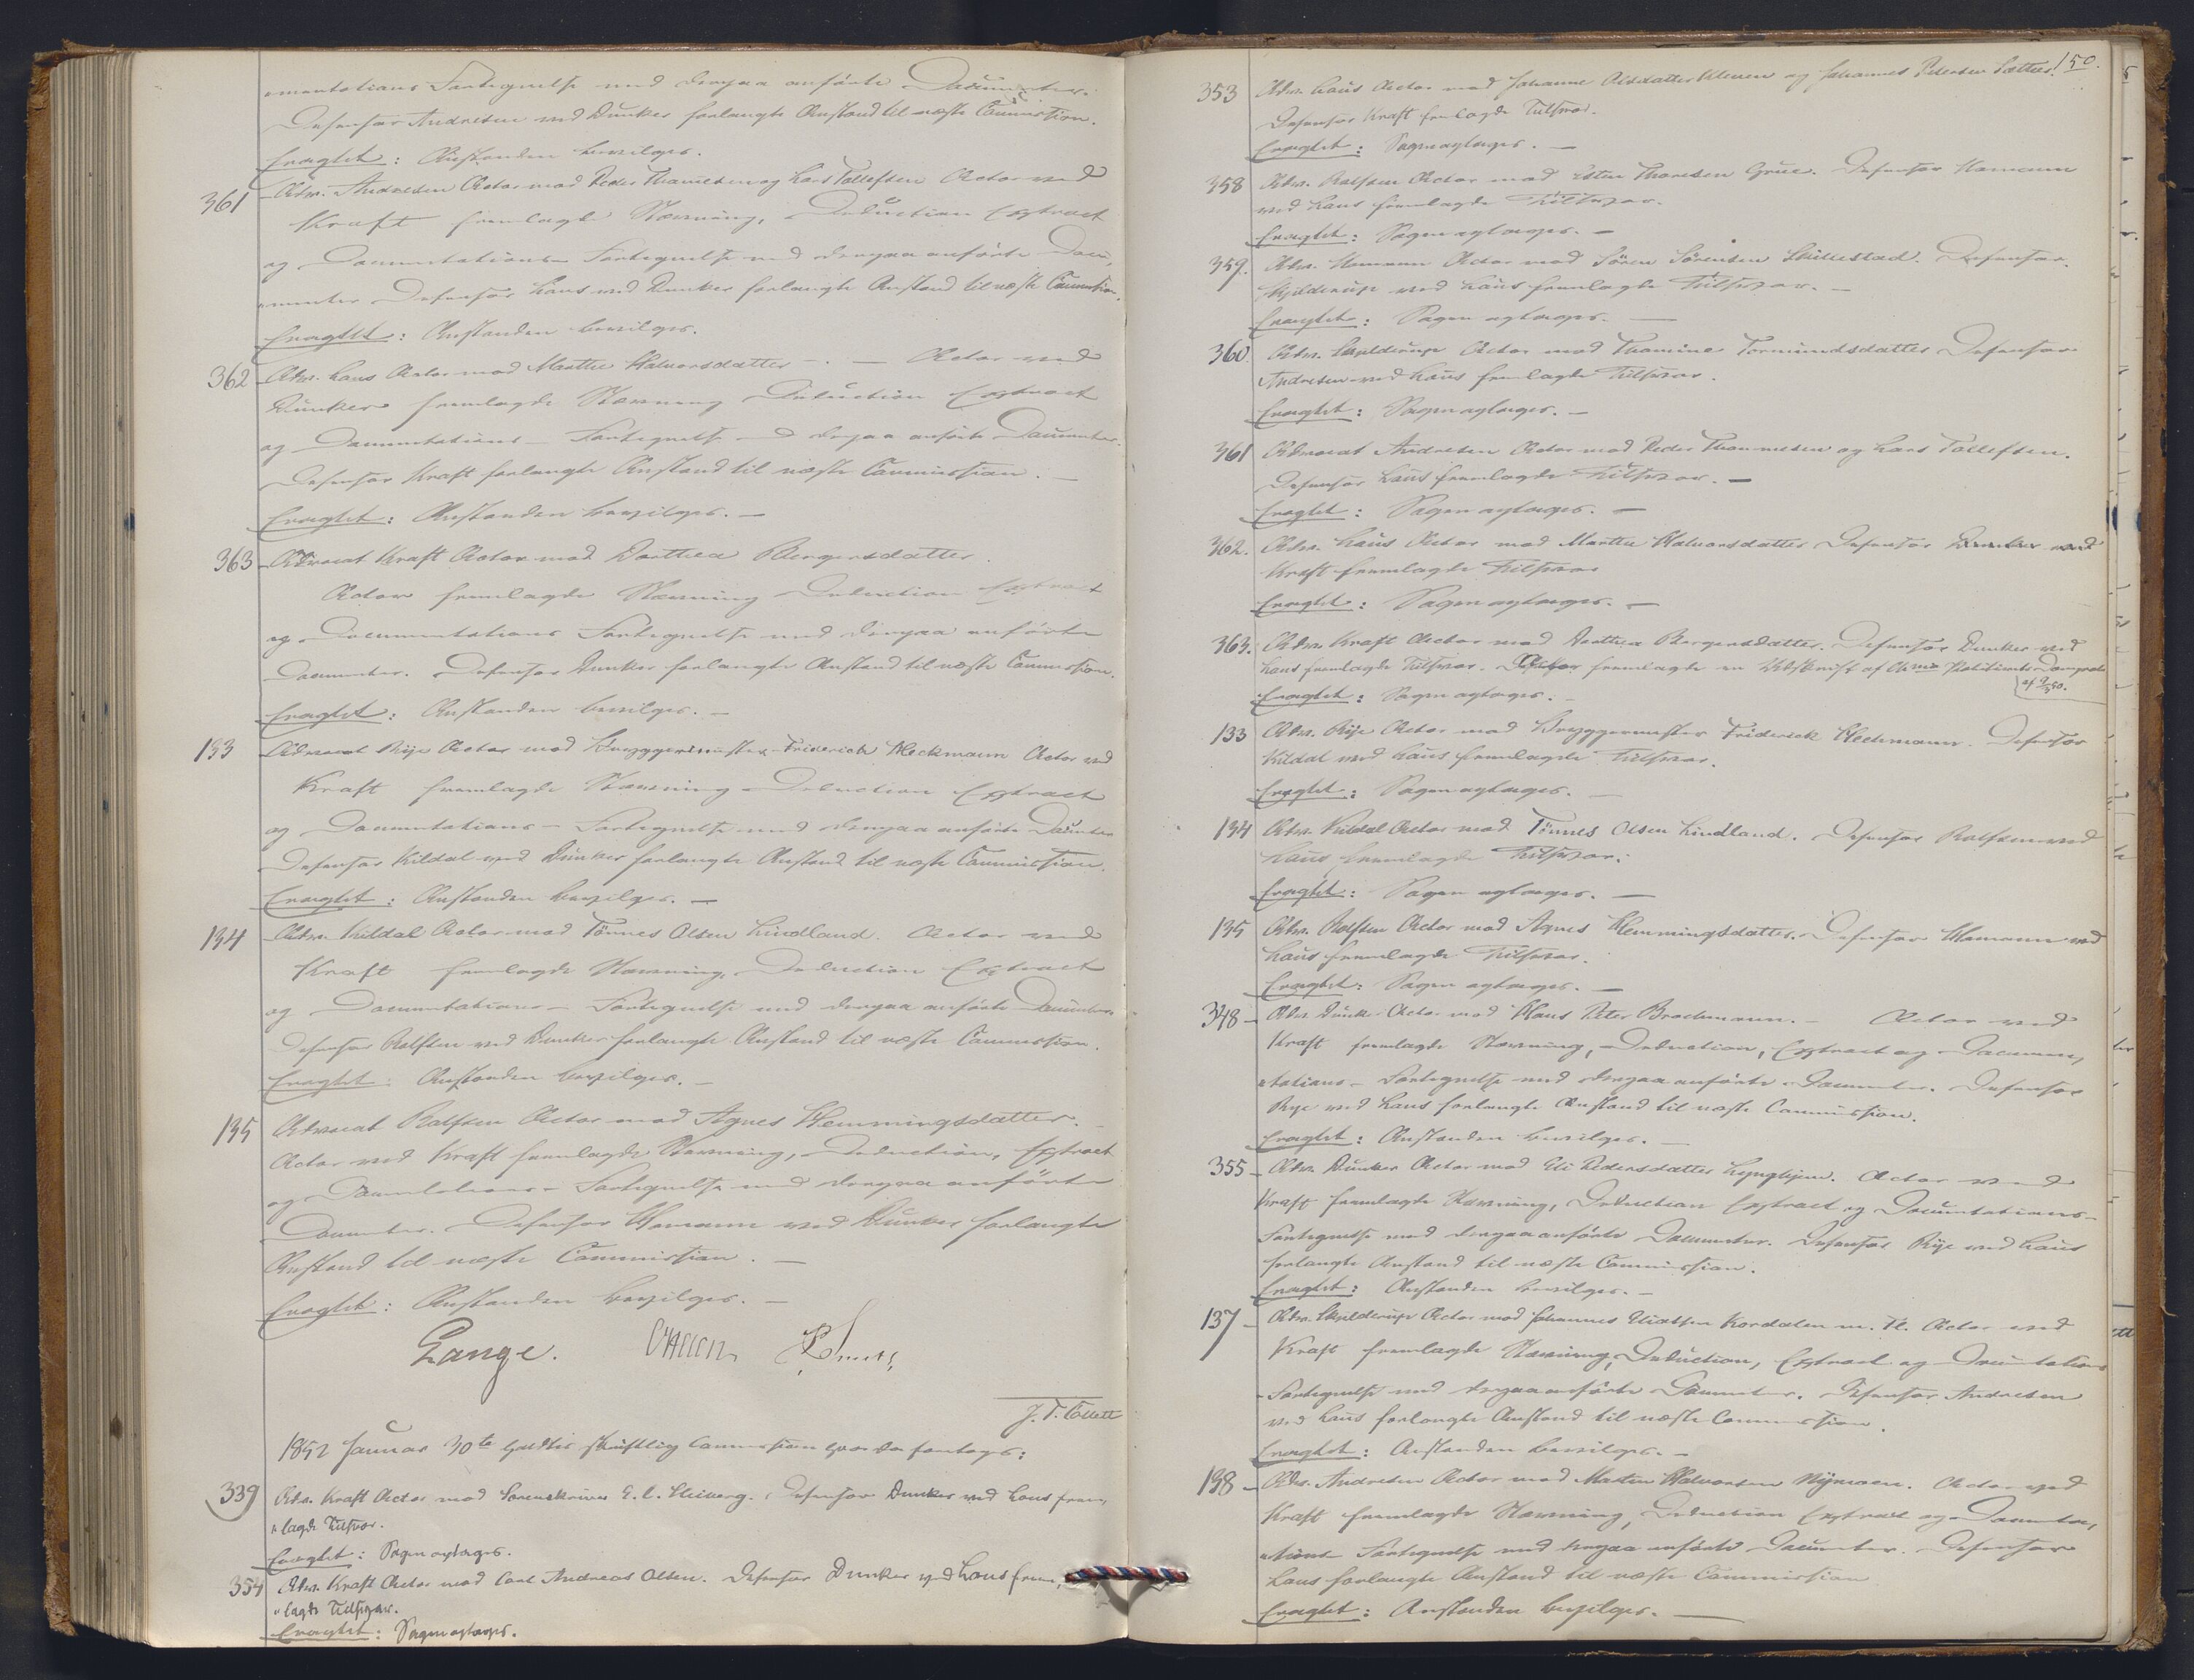 mentations Fortegnelse med derpaa anførte Documenter.
Defensor Andresen ved Dunker forlangte Anstand til næste Commission.
Eragtet: Anstanden bevilges.
361 Adv. Andresen Actor mod Peder Thomesen og Lars Tollefsen Actor ved
Kraft fremlagde Stævning, Deduction Extract
og Documentations Fortegnelse med derpaa anførte Docu-
menter Defensor Haus ved Dunker forlangte Anstand til næste Commission.
Eragtet: Anstanden bevilges.
362 Adv. Haus Actor mod Marthe Halvorsdatter — Actor ved
Dunker fremlagde Stævning Deduction Extract
og Documentations Fortegnelse med derpaa anførte Documenter.
Defensor Kraft forlangte Anstand til næste Commission. —
Eragtet: Anstanden bevilges. —
363 Advocat Kraft Actor mod Dorthea Bergersdatter.
Actor fremlagde Stævning Deduction Extract
og Documentations Fortegnelse med derpaa anførte
Documenter. Defensor Dunker forlangte Anstand til næste Commission.
Eragtet: Anstanden bevilges. —
133 Advocat Rye Actor mod Bryggermester Friderich Heckmann Actor ved
Kraft fremlagde Stævning Deduction Extract
og Documentations — Fortegnelse med derpaa anførte Documenter
Defensor Kildal ved Dunker forlangte Anstand til næste Commission.
Eragtet: Anstanden bevilges. —
134 Adv. Kildal Actor mod Tönnes Olsen Lindland. Actor ved
Kraft fremlagde Stævning, Deduction Extract
og Documentations — Fortegnelse med derpaa anførte Documenter
Defensor Rolfsen ved Dunker forlangte Anstand til næste Commission.
Eragtet: Anstanden bevilges. —
135 Advocat Rolfsen Actor mod Agnes Hemmingsdatter. —
Actor ved Kraft fremlagde Stævning, Deduction, Extract
og Documentations — Fortegnelse med derpaa anførte
Documenter. Defensor Homann ved Dunker forlangte
Anstand til næste Commission. —
Eragtet: Anstanden bevilges. —
Lange.
J. T. Collett
1852 Januar 30te holdtes skriftlig Commission hvorda foretoges:
339 Adv. Kraft Actor mod Sorenskriver E. C. Heiberg. Defensor Dunker ved Haus frem-
lagde Tilsvar.
Eragtet: Sagen optages.
354 Adv. Kraft Actor mod Carl Andreas Olsen. Defensor Dunker ved Haus frem-
lagde Tilsvar.
Eragtet: Sagen optages.
150.
353 Adv. Haus Actor mod Johanne Olsdatter Kleven og Johannes Pedersen Sætter.
Defensor Kraft fremlagde Tilsvar.
Eragtet: Sagen optages. —
358 Adv. Rolfsen Actor mod Esten Thoresen Grue. Defensor Homann
ved Haus fremlagde Tilsvar.
Eragtet: Sagen optages. —
359. Adv. Homann Actor mod Sören Sörensen Skillestad. Defensor
Skjelderup ved Haus fremlagde Tilsvar. —
Eragtet: Sagen optages. —
360. Adv. Skjelderup Actor mod Thomine Tormundsdatter Defensor
Andresen ved Haus fremlagde Tilsvar.
Eragtet: Sagen optages. —
361 Advocat Andresen Actor mod Peder Thommesen og Lars Tollefsen.
Defensor Haus fremlagde Tilsvar. —
Eragtet: Sagen optages. —
362. Adv. Haus Actor mod Marthe Halvorsdatter Defensor Dunker ved
Kraft fremlagde Tilsvar
Eragtet: Sagen optages. —
363. Adv. Kraft Actor mod Dorthea Bergersdatter. Defensor Dunker ved
Haus fremlagde Tilsvar. Actor fremlagde en Udskrift af
Eragtet: Sagen optages. —
133 Adv. Rye Actor mod Bryggermester Friderick Heckmann. Defensor
Kildal ved Haus fremlagde Tilsvar.
Eragtet: Sagen optages. —
134 Adv. Kildal Actor mod Tönnes Olsen Lindland. Defensor Rolfsen ved
Haus fremlagde Tilsvar.
Eragtet: Sagen optages. —
135 Adv. Rolfsen Actor mod Agnes Hemmingsdatter. Defensor Homann ved
Haus fremlagde Tilsvar.
Eragtet: Sagen optages. —
348 — Adv. Dunker Actor mod Hans Peter Brochmann. — Actor ved
Kraft fremlagde Stævning, Deduction, Extract og Documen-
tations — Fortegnelse med derpaa anførte Documenter. Defensor
Rye ved Haus forlangte Anstand til næste Commission.
Eragtet: Anstanden bevilges. —
355 — Adv. Dunker Actor mod Eli Pedersdatter Lynghjem. Actor ved
Kraft fremlagde Stævning, Deduction Extract og Documentations-
Fortegnelse med derpaa anførte Documenter. Defensor Rye ved Haus
forlangte Anstand til næste Commission.
Eragtet: Anstanden bevilges. —
137 — Adv. Skjelderup Actor mod Johannes Eliassen Kordalen m. Fl. Actor ved
Kraft fremlagde Stævning, Deduction, Extract og Documentations
Fortegnelse med derpaa anførte Documenter. Defensor Andresen
ved Haus forlangte Anstand til næste Commission.
Eragtet: Anstanden bevilges. —
138 — Adv. Andresen Actor mod Morten Halvorsen Nymoen. Actor ved
Kraft fremlagde Stævning, Deduction Extract og Documenta-
tions Fortegnelse med derpaa anførte Documenter. Defensor
Haus forlangte Anstand til næste Commission
Eragtet: Anstanden bevilges. —